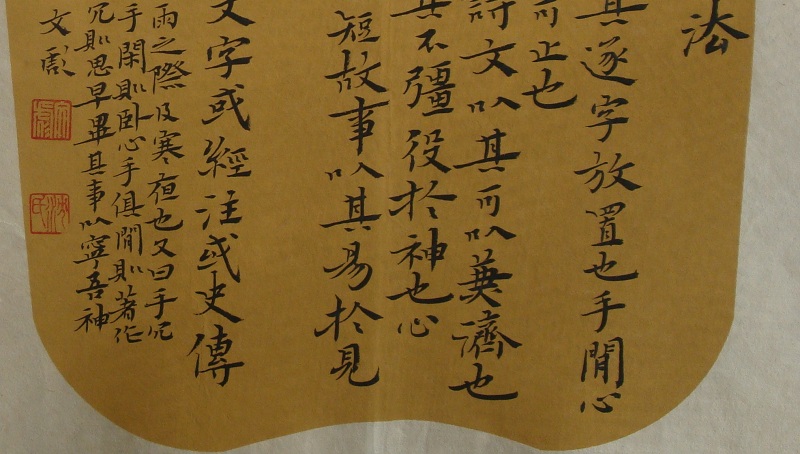 法
其遂字放置也手閒心
可止也
討文以其可以兼濟也
其不彊役於神也心
短故事以其易於見
文字或經注或史傳
雨之際及寒夜也又曰手冗
手閑則卧心手俱閒則著作
冗則思早畢其事以寧吾神
文彪